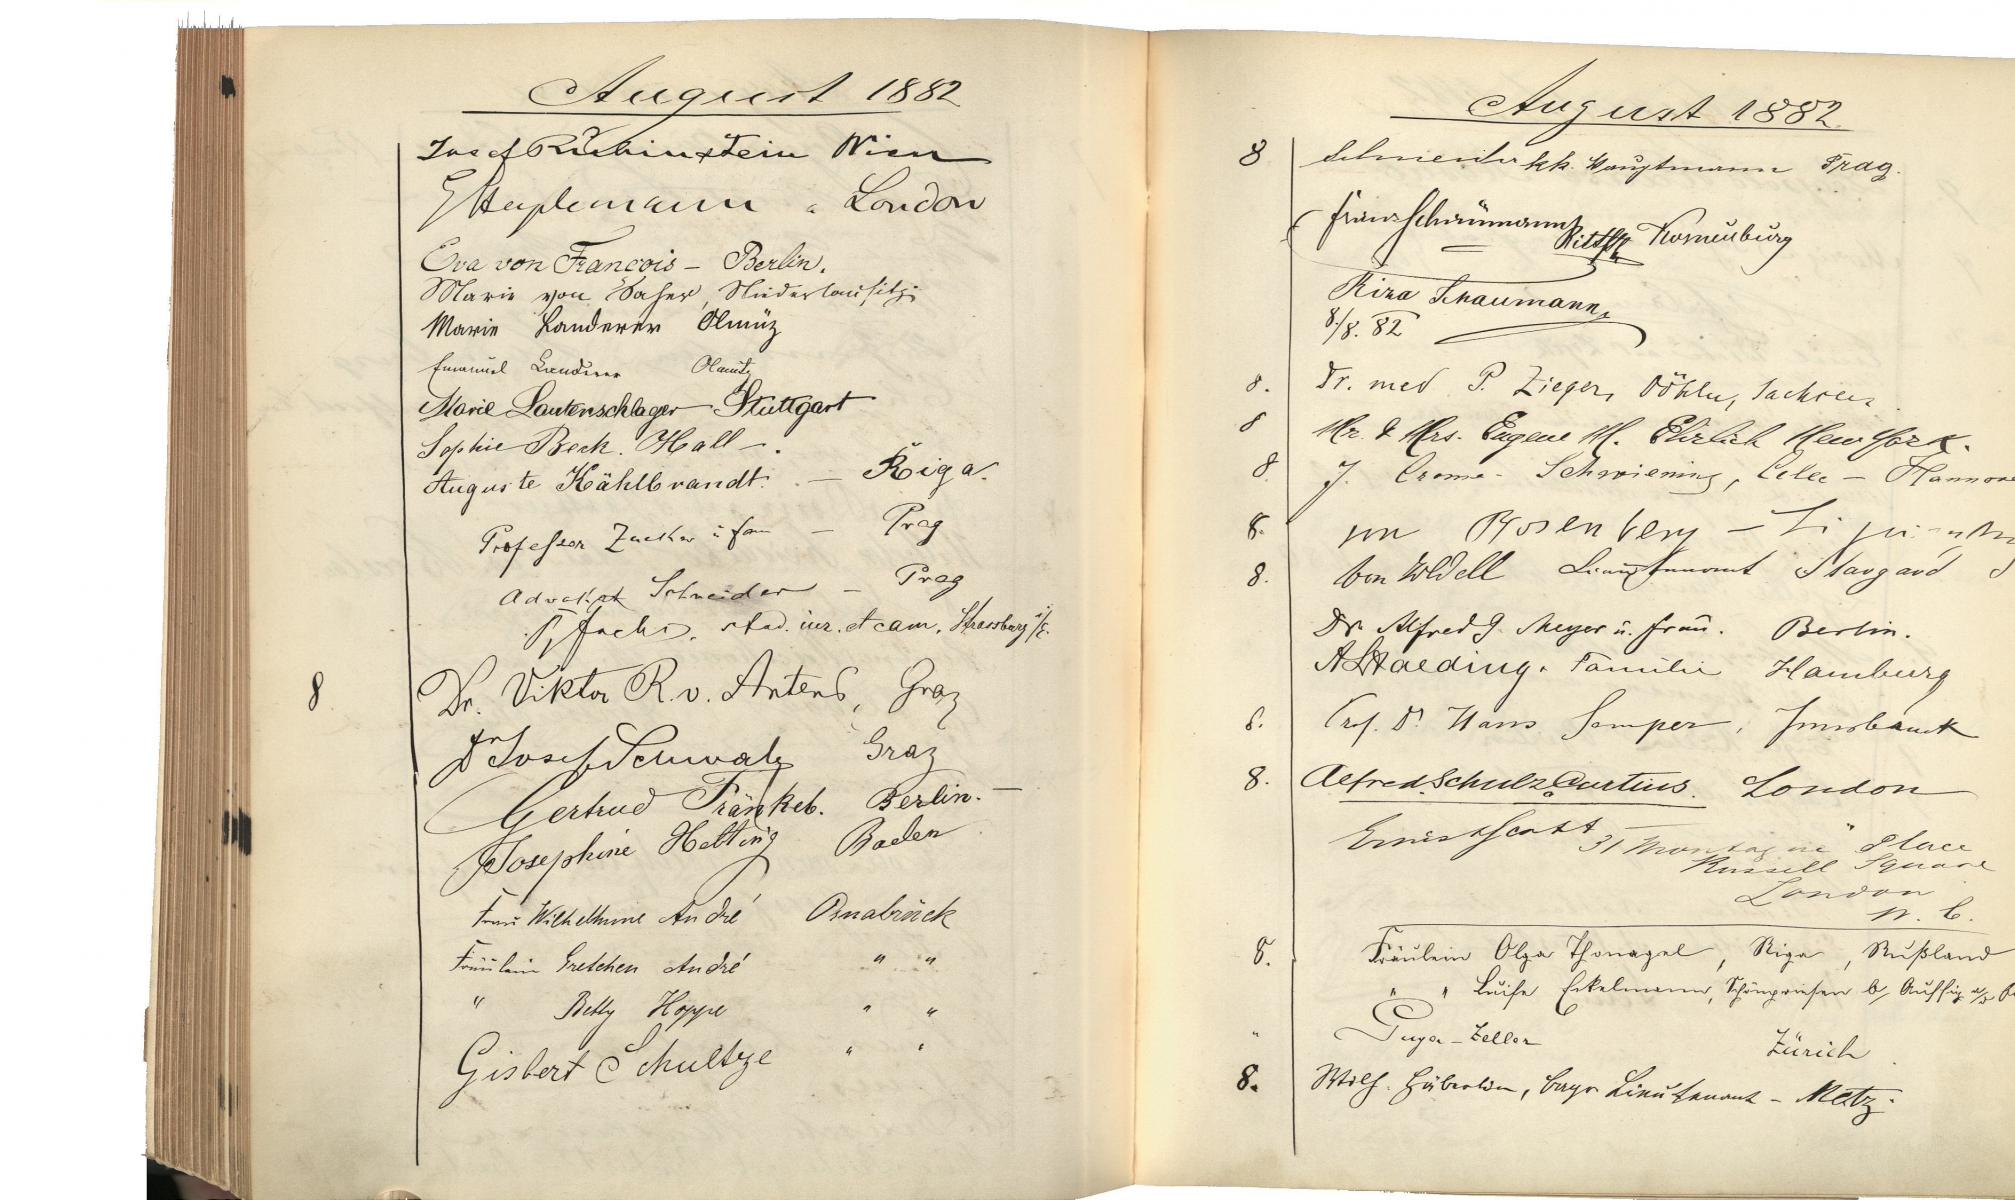 August 1882
Josef Rubinstein Wien
London
Eva von François – Berlin.
Marie von Niederlausitz
Marie Landerer Olmüz
Emanuel Landerer Olmütz
Marie Lautenschlager Stuttgart
Sophie Beck. Hall –.
Auguste Kählbrandt. – Riga.
Professor Zucker u fam – Prag
Advokat Schneider – Prag
Fuchs, stud. iur. et cam. Strassburg i/E.
8 Dr. Viktor R. v. Artens, Graz
Dr Josef Schwalz Graz
Gertrud Fränkel. Berlin. –
Josephine Helbing Baden
Frau Wilhelmine André Osnabrück
Fräulein Gretchen André " "
" Betty Hoppe " "
Gisbert Schultze " "
August 1882
8 kk. Hauptmann Prag.
Franz Schaumann Korneuburg
Riza Schaumann
8/8. 82
8. Dr. med P. Zieger, Döhlen, Sachsen
8 Mr. & Mrs. Eugene M. Ehrlich New York.
8. J. Crome-Schwiening, Celle – Hannover
8. von Rosenberg –
8. von Wedell Lieutenant Stargard
Dr. Alfred G. Meyer u. Frau. Berlin.
Familie Hamburg
8. Prof. Dr. Hans Semper, Innsbruck
8. Alfred Schulz Curtius. London
Ernest Scott 31 Montague Place
Russell Square
London
W. C.
8. Fräulein Olga Thonagel, Riga, Rußland
" " Luise Eckelmann, Schönpriesen b/ Aussig a/
" Guyer-Zeller Zürich
8. Wilh. Häberlein, bayr Lieutenant – Metz.